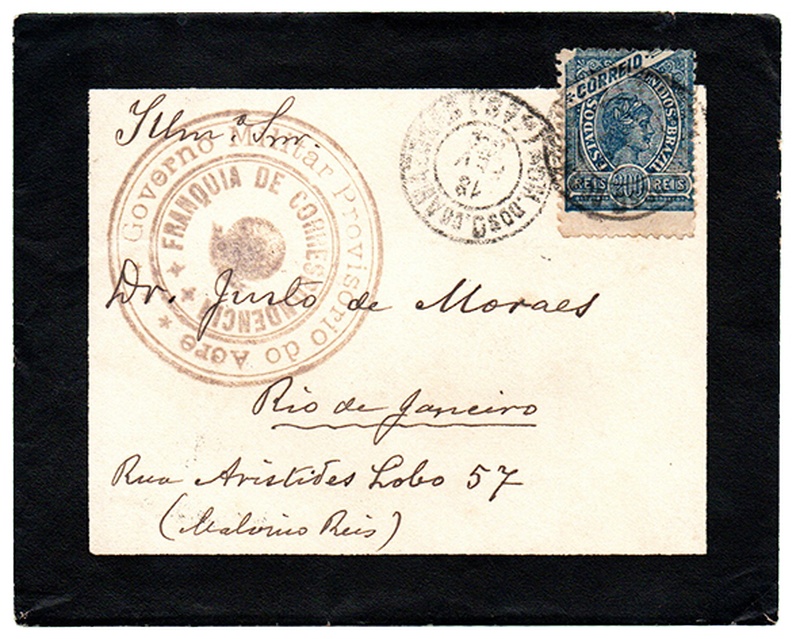 CORREIO
ESTADOS UNIDOS BRAZIL
REIS 200 REIS
Illmº Snr.
* Governo Militar Provisório do Acre *
FRANQUIA DE CORRESPONDENCIA
Dr. Justo de Moraes
Rio de Janeiro
Rua Aristides Lobo 57
(Malvino Reis)